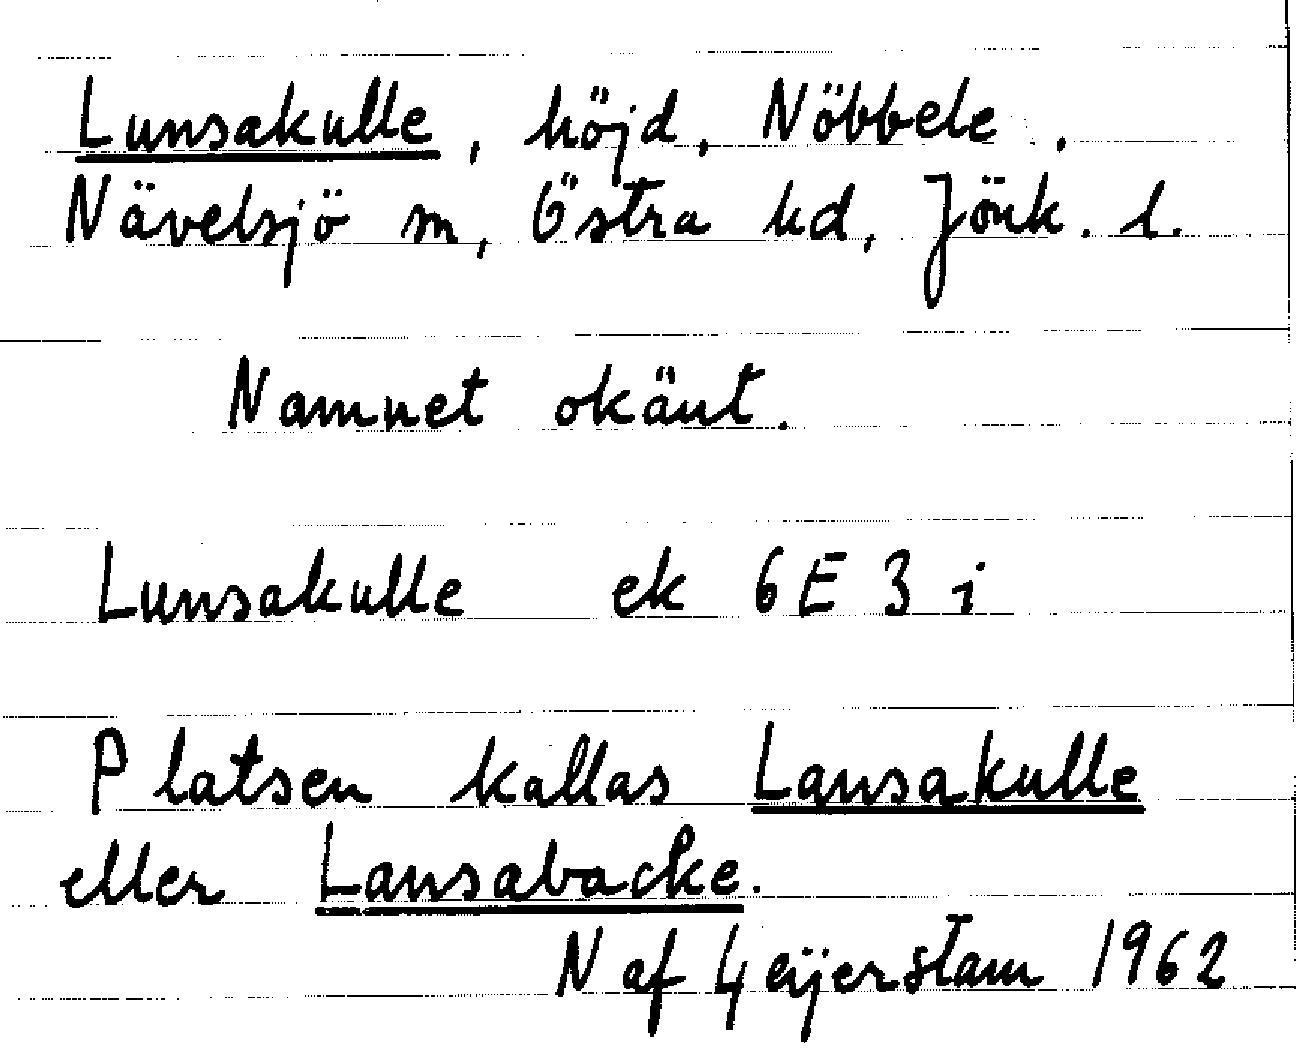 Lunsakulle, höjd, Nöbbele.
Nävelsjö sn, Östra hd, Jönk. l.
Namnet okänt.
Lunsakulle ek 6E 3 i
Platsen kallas Lansakulle
eller Lansabacke.
N af Geijerstam 1962